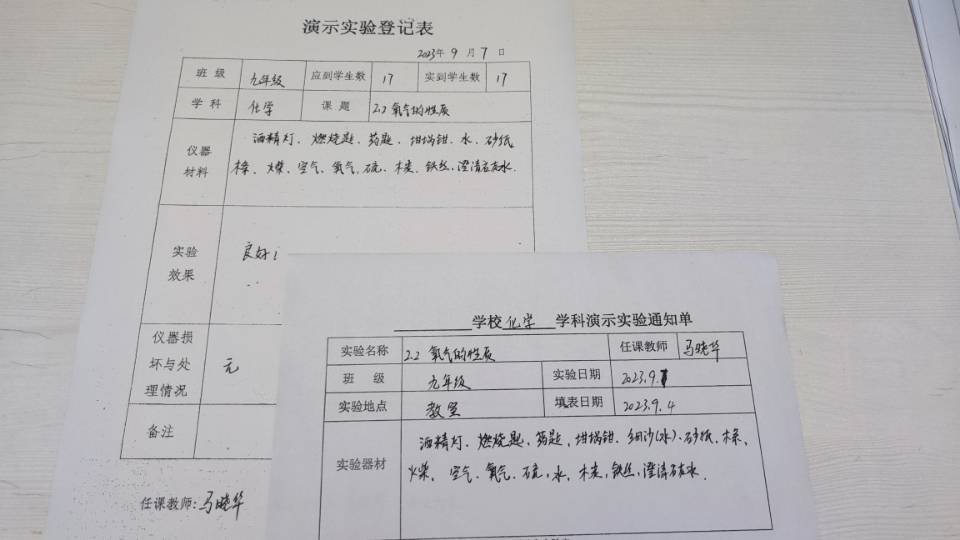 演示实验登记表
2023年 9 月 7 日
班 级 九年级 应到学生数 17 实到学生数 17
学 科 化学 课 题 2.2 氧气的性质
仪器材料 酒精灯、燃烧匙、药匙、坩埚钳、水、砂纸
棒、火柴、空气、氧气、硫、木炭、铁丝、澄清石灰水.
实验效果 良好
仪器损坏与处理情况 无
备注
任课教师: 马晓华
学校 化学 学科演示实验通知单
实验名称 2.2 氧气的性质 任课教师 马晓华
班 级 九年级 实验日期 2023.9.7
实验地点 教室 填表日期 2023.9.4
实验器材 酒精灯、燃烧匙、药匙、坩埚钳、细沙(水)、砂纸、棒、
火柴、空气、氧气、硫、水、木炭、铁丝、澄清石灰水.